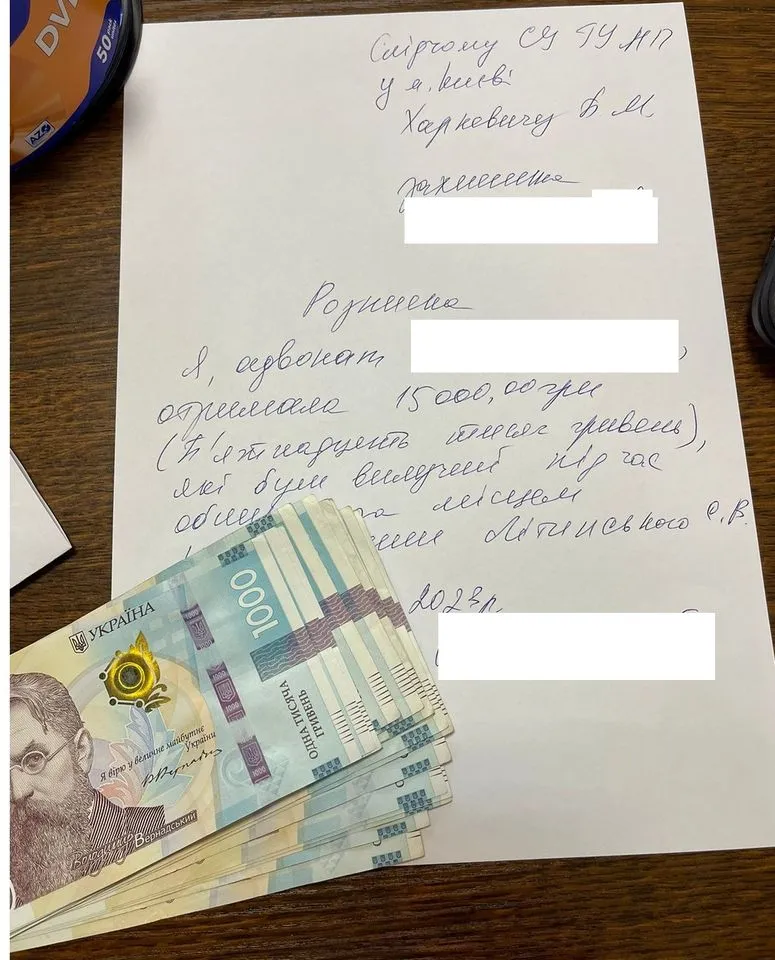 DV
50
AZO
Слідчому СУ ГУ НП
у м. Києві
Харкевичу Б М.
захисника
Розписка
Я, адвокат
,
отримала 15000,00 грн
(П'ятнадцять тисяч гривень),
які були вилучені під час
місцем
Літинського С. В.
2023р.
УКРАЇНА
1000
ОДНА ТИСЯЧА
ГРИВЕНЬ
Я вірю у величне майбутнє
України
Володимир Вернадський
1000
1000